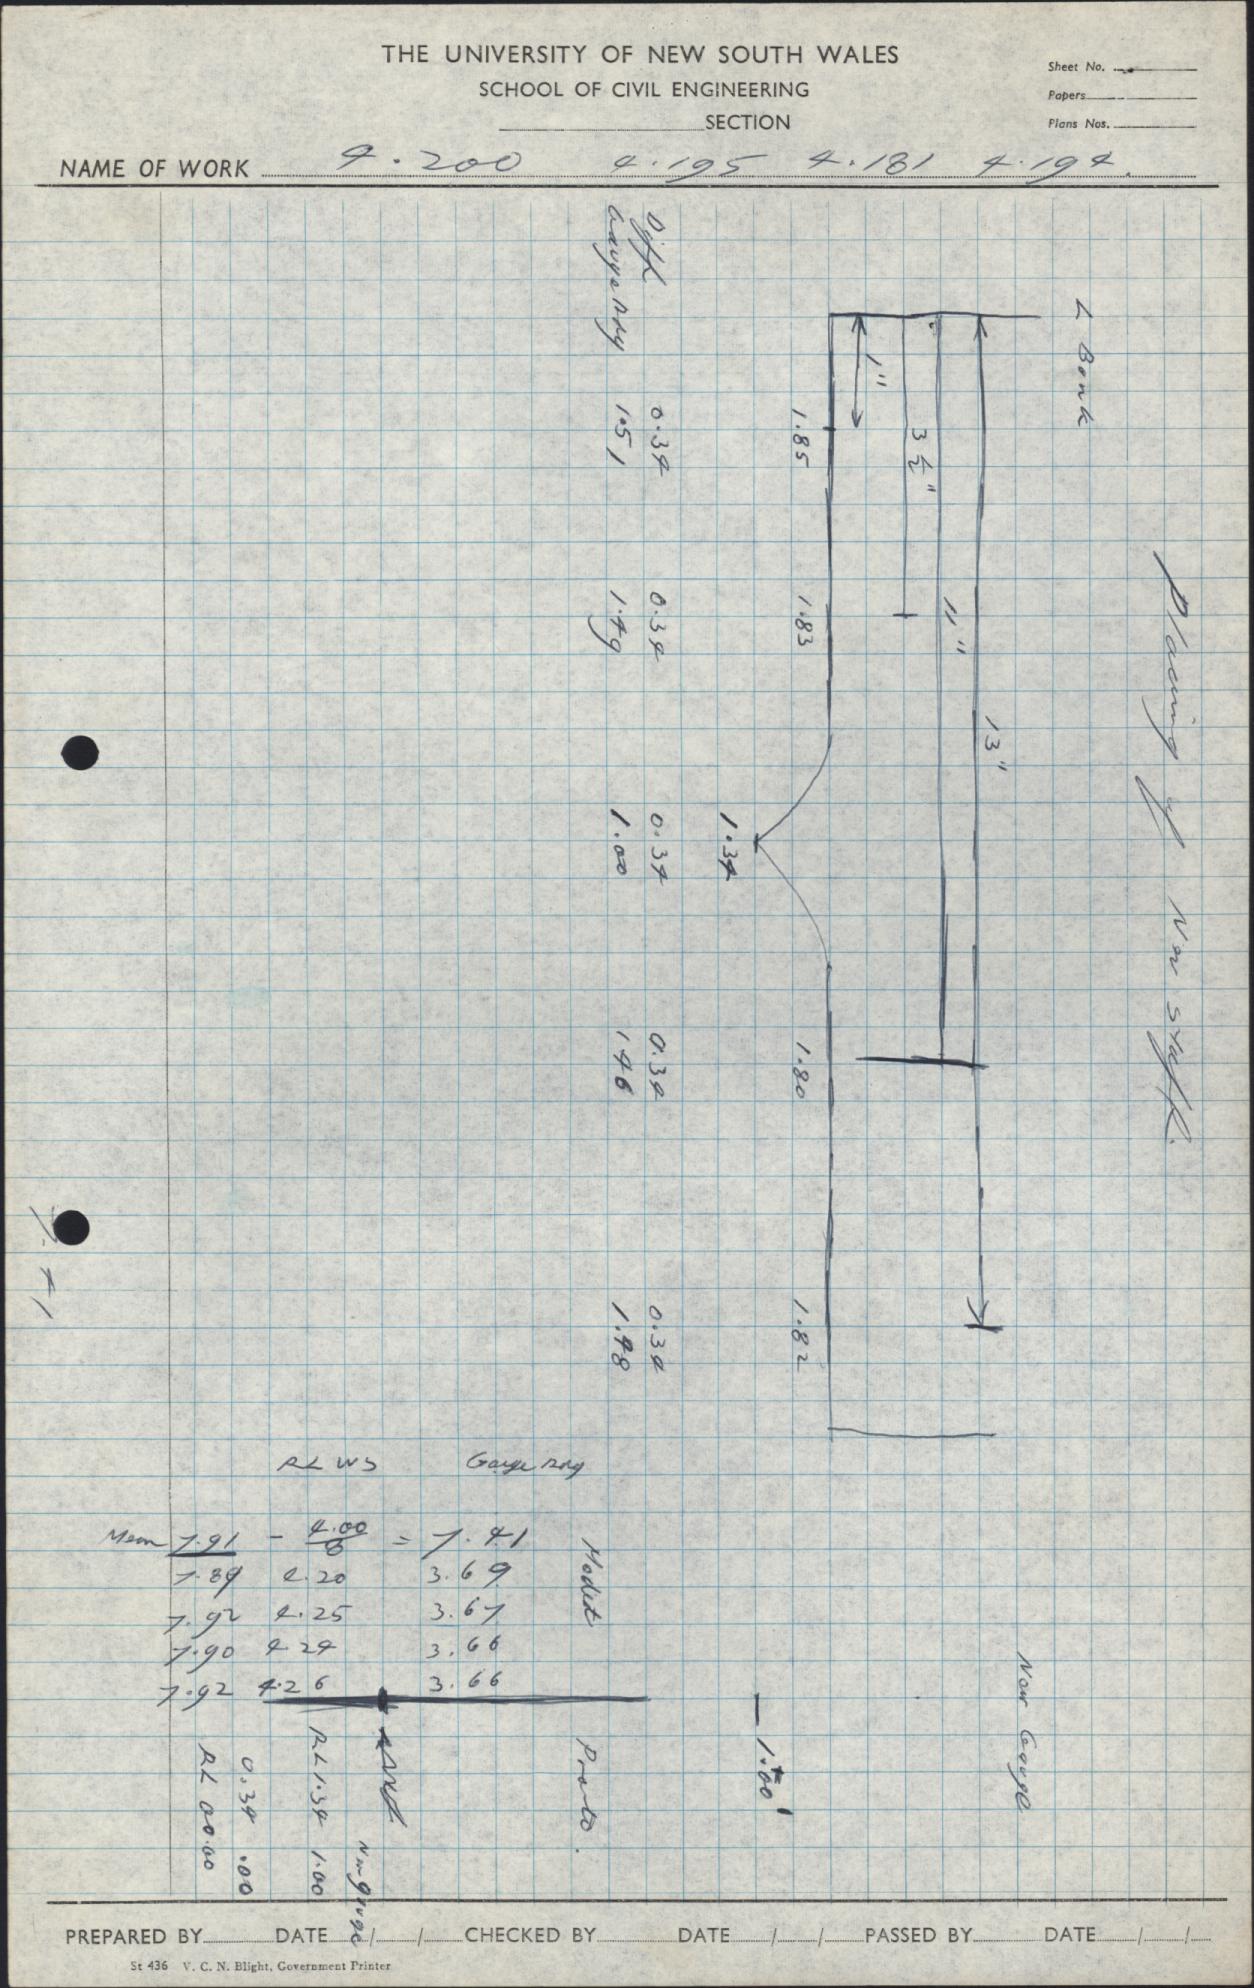 THE UNIVERSITY OF NEW SOUTH WALES
SCHOOL OF CIVIL ENGINEERING
SECTION
Sheet No.
Papers
Plans Nos.
NAME OF WORK 4.200 4.195 4.181 4.194
Placing of New Staff.
L Bank
13"
11"
3 1/2"
1"
1.85 1.83 1.34 1.80 1.82
Diff 0.34 0.34 0.34 0.34 0.34
Gauge Rdg 1.51 1.49 1.00 1.46 1.48
7.41
RL WS Gauge Rdg
Mean 7.91 - 4.00/8 = 7.41
7.89 4.20 3.69
7.92 4.25 3.67
7.90 4.24 3.66
7.92 4.26 3.66
Model Proto.
New Gauge
1.00'
New gauge
RL 1.34 1.00
0.34 .00
RL 00.00
PREPARED BY DATE / / CHECKED BY DATE / / PASSED BY DATE / /
St 436 V. C. N. Blight, Government Printer